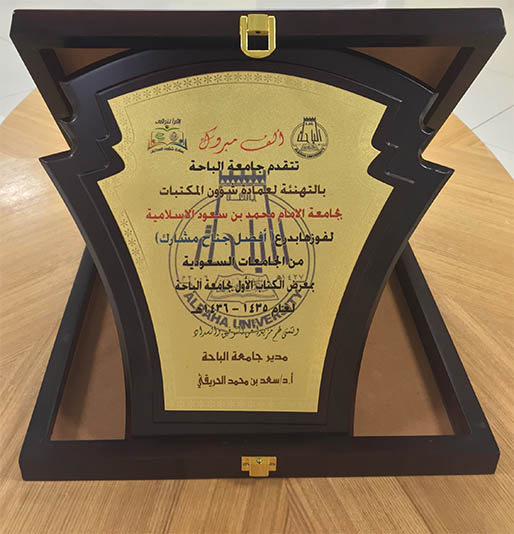 ألف مبروك
تتقدم جامعة الباحة
بالتهنئة لعمادة شؤون المكتبات
بجامعة الامام محمد بن سعود الاسلامية
لفوزها بدرع (أفضل جناح مشارك)
من الجامعات السعودية
بمعرض الكتاب الأول بجامعة الباحة
لعام ١٤٣٥ - ١٤٣٦هـ
ALBAHA UNIVERSITY
مدير جامعة الباحة
أ.د/سعد بن محمد الحريقي